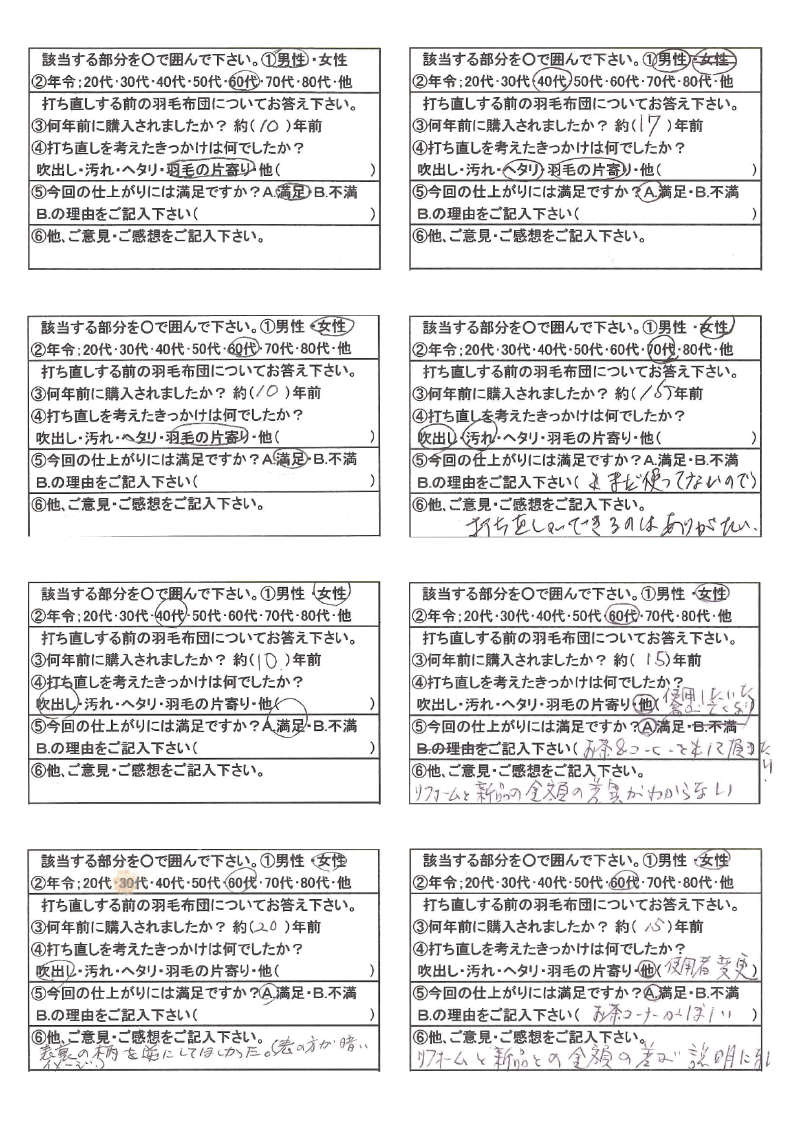 該当する部分を〇で囲んで下さい。①男性・女性
②年令;20代・30代・40代・50代・60代・70代・80代・他
打ち直しする前の羽毛布団についてお答え下さい。
③何年前に購入されましたか？ 約(10)年前
④打ち直しを考えたきっかけは何でしたか？
吹出し・汚れ・ヘタリ・羽毛の片寄り・他( )
⑤今回の仕上がりには満足ですか？A.満足・B.不満
B.の理由をご記入下さい( )
⑥他、ご意見・ご感想をご記入下さい。
該当する部分を〇で囲んで下さい。①男性・女性
②年令;20代・30代・40代・50代・60代・70代・80代・他
打ち直しする前の羽毛布団についてお答え下さい。
③何年前に購入されましたか？ 約(17)年前
④打ち直しを考えたきっかけは何でしたか？
吹出し・汚れ・ヘタリ・羽毛の片寄り・他( )
⑤今回の仕上がりには満足ですか？A.満足・B.不満
B.の理由をご記入下さい( )
⑥他、ご意見・ご感想をご記入下さい。
該当する部分を〇で囲んで下さい。①男性・女性
②年令;20代・30代・40代・50代・60代・70代・80代・他
打ち直しする前の羽毛布団についてお答え下さい。
③何年前に購入されましたか？ 約(10)年前
④打ち直しを考えたきっかけは何でしたか？
吹出し・汚れ・ヘタリ・羽毛の片寄り・他( )
⑤今回の仕上がりには満足ですか？A.満足・B.不満
B.の理由をご記入下さい( )
⑥他、ご意見・ご感想をご記入下さい。
該当する部分を〇で囲んで下さい。①男性・女性
②年令;20代・30代・40代・50代・60代・70代・80代・他
打ち直しする前の羽毛布団についてお答え下さい。
③何年前に購入されましたか？ 約(15)年前
④打ち直しを考えたきっかけは何でしたか？
吹出し・汚れ・ヘタリ・羽毛の片寄り・他( )
⑤今回の仕上がりには満足ですか？A.満足・B.不満
B.の理由をご記入下さい(まだ使ってないので)
⑥他、ご意見・ご感想をご記入下さい。
打ち直しができるのはありがたい.
該当する部分を〇で囲んで下さい。①男性・女性
②年令;20代・30代・40代・50代・60代・70代・80代・他
打ち直しする前の羽毛布団についてお答え下さい。
③何年前に購入されましたか？ 約(10)年前
④打ち直しを考えたきっかけは何でしたか？
吹出し・汚れ・ヘタリ・羽毛の片寄り・他( )
⑤今回の仕上がりには満足ですか？A.満足・B.不満
B.の理由をご記入下さい( )
⑥他、ご意見・ご感想をご記入下さい。
該当する部分を〇で囲んで下さい。①男性・女性
②年令;20代・30代・40代・50代・60代・70代・80代・他
打ち直しする前の羽毛布団についてお答え下さい。
③何年前に購入されましたか？ 約(15)年前
④打ち直しを考えたきっかけは何でしたか？
吹出し・汚れ・ヘタリ・羽毛の片寄り・他(
⑤今回の仕上がりには満足ですか？A.満足・B.不満
B.の理由をご記入下さい(お茶&コーヒーを
⑥他、ご意見・ご感想をご記入下さい。
リフォームと新品の金額の差異がわからない
該当する部分を〇で囲んで下さい。①男性・女性
②年令;20代・30代・40代・50代・60代・70代・80代・他
打ち直しする前の羽毛布団についてお答え下さい。
③何年前に購入されましたか？ 約(20)年前
④打ち直しを考えたきっかけは何でしたか？
吹出し・汚れ・ヘタリ・羽毛の片寄り・他( )
⑤今回の仕上がりには満足ですか？A.満足・B.不満
B.の理由をご記入下さい( )
⑥他、ご意見・ご感想をご記入下さい。
表裏の柄を逆にしてほしかった。(表の方が暗い
イメージ)
該当する部分を〇で囲んで下さい。①男性・女性
②年令;20代・30代・40代・50代・60代・70代・80代・他
打ち直しする前の羽毛布団についてお答え下さい。
③何年前に購入されましたか？ 約(15)年前
④打ち直しを考えたきっかけは何でしたか？
吹出し・汚れ・ヘタリ・羽毛の片寄り・他(使用者変更)
⑤今回の仕上がりには満足ですか？A.満足・B.不満
B.の理由をご記入下さい(お茶コーナーがほしい)
⑥他、ご意見・ご感想をご記入下さい。
リフォームと新品との金額の差が 説明に